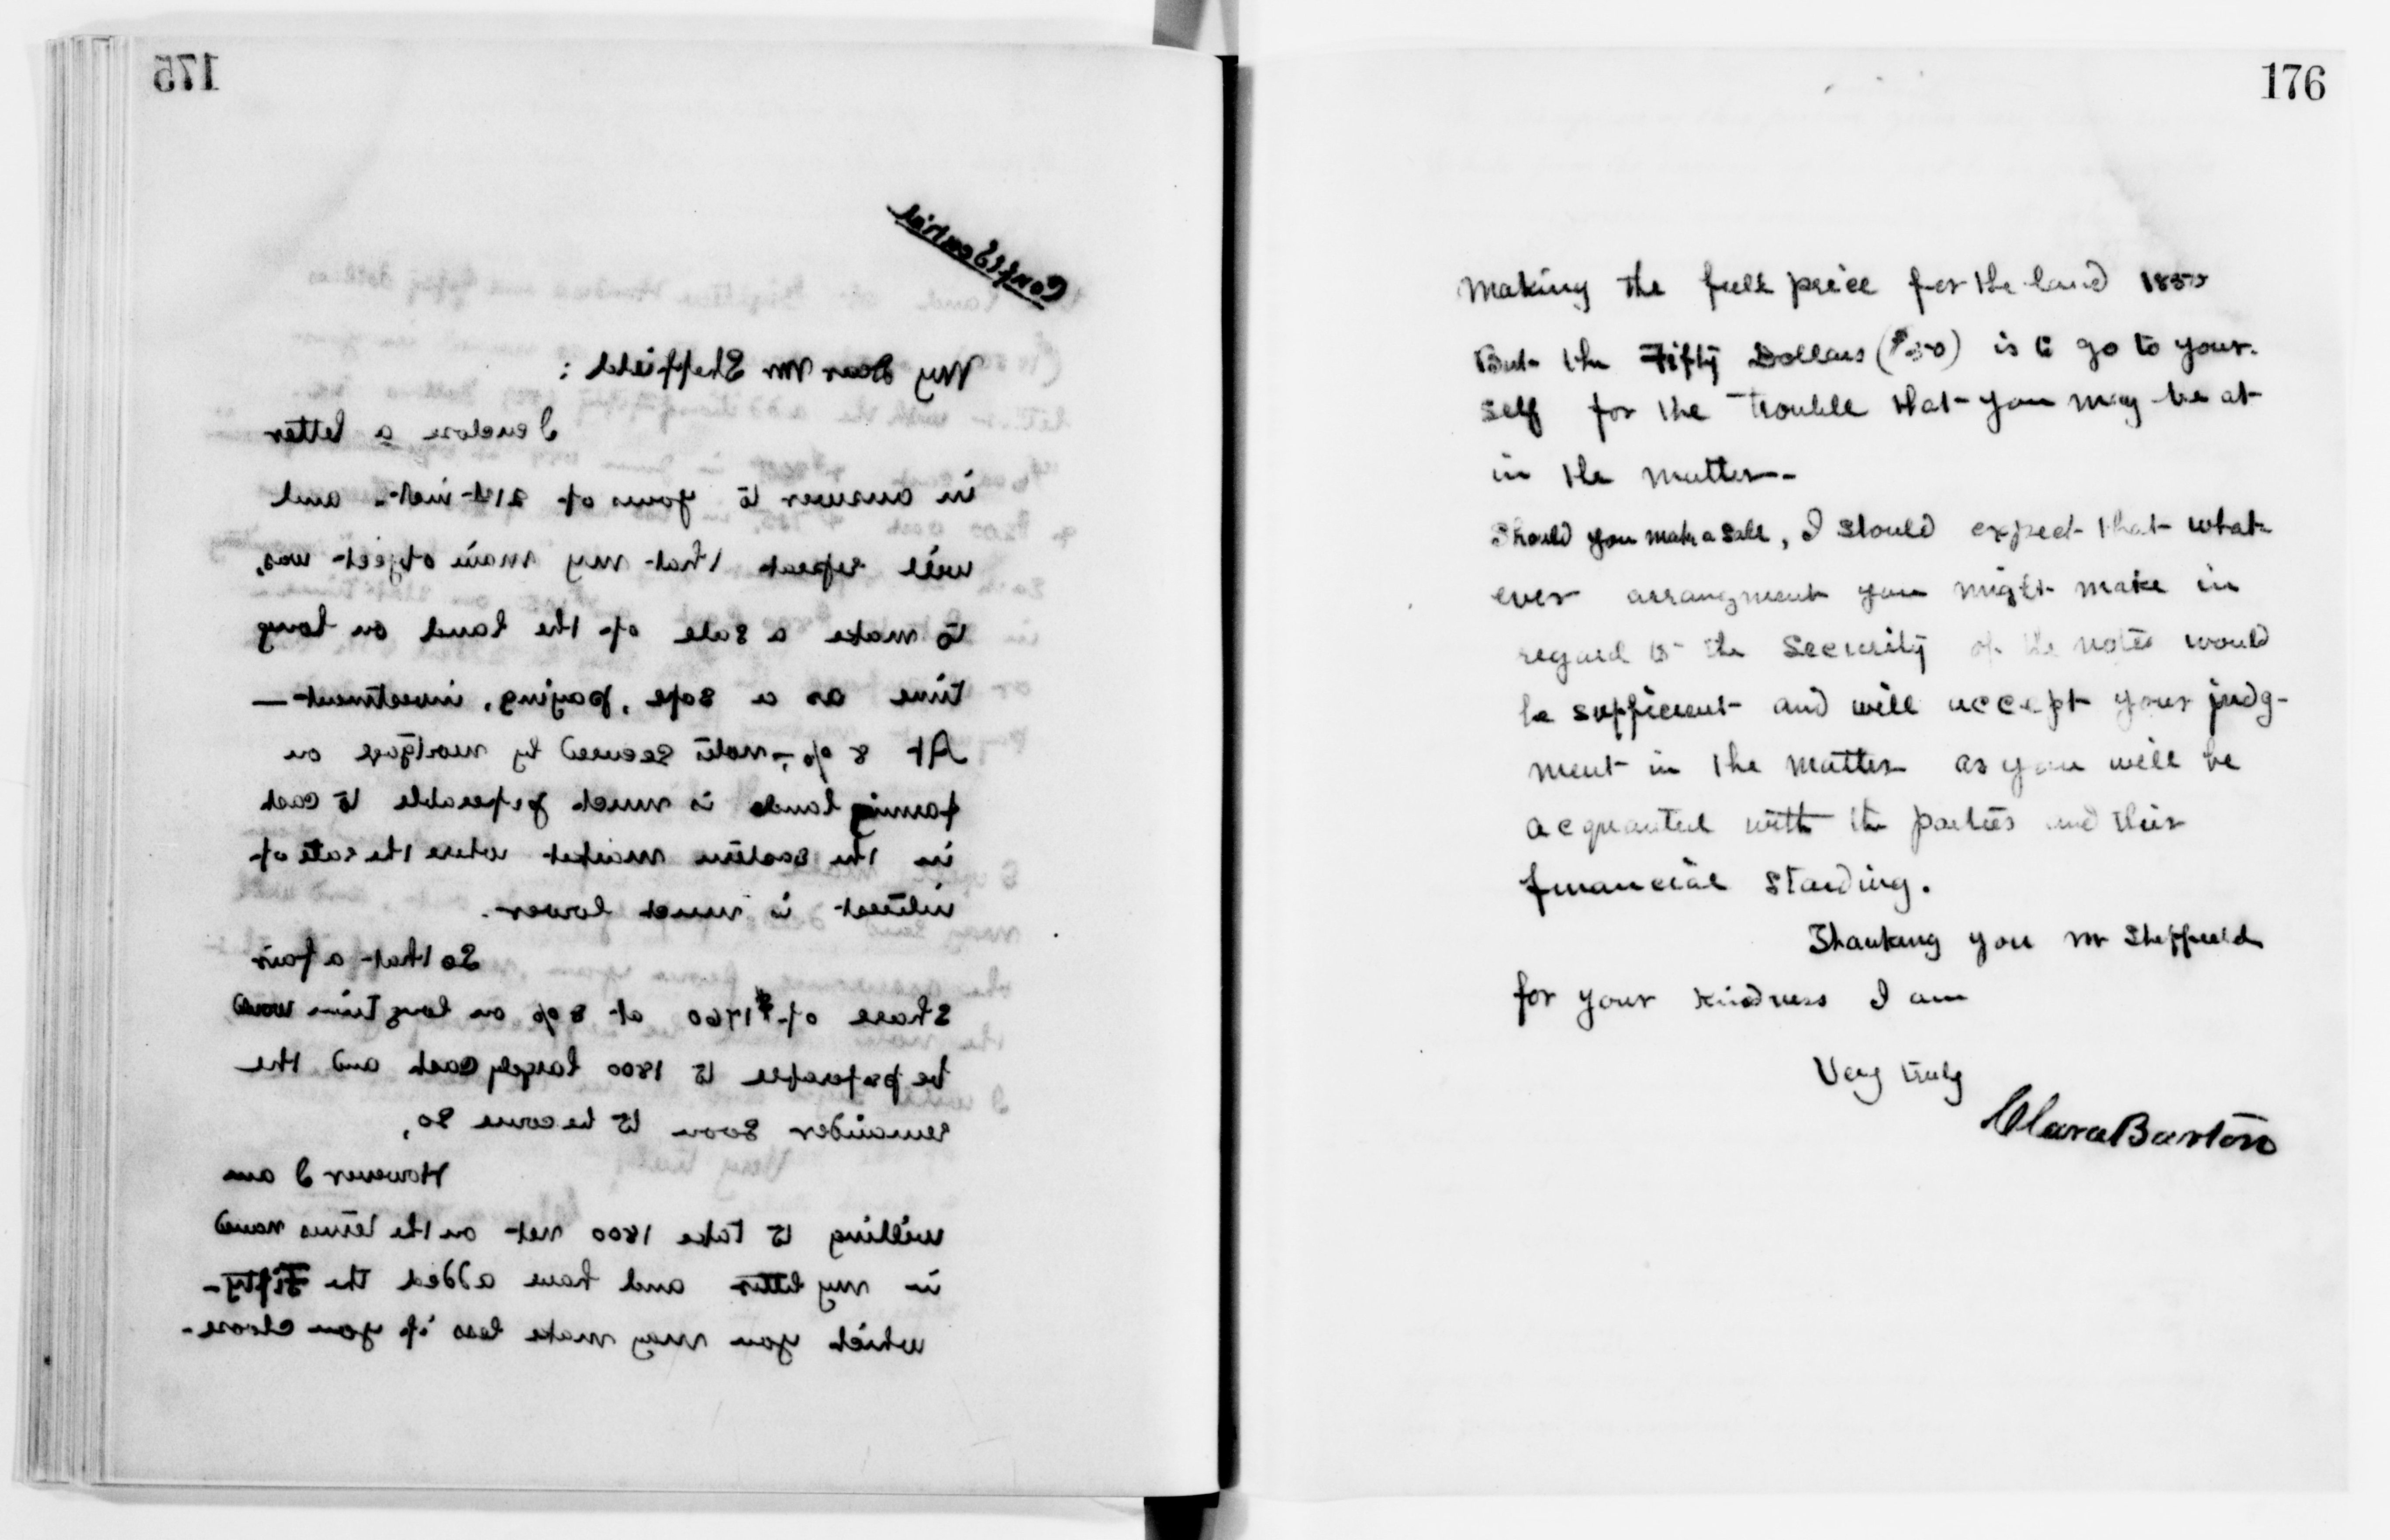 175
Confidential
My Dear Mr Sheffield:
I enclose a letter
in answer to yours of 21st inst. and
will repeat that my main object was,
to make a sale of the land on long
time as a safe, paying, investment—
At 8 %, note secured by mortgage on
farming lands is much preferable to cash
in the eastern market where the rate of
interest is much lower.
So that a fair
share of $1760 at 8% on long time would
be preferable to 1800 largely cash and the
remainder soon to become so,
However I am
willing to take 1800 net on the terms named
in my letter and have added the Fifty-
which you may make less if you choose-
176
Making the full price for the land 1850
But the Fifty Dollars ($50) is to go to your-
self for the trouble that you may be at
in the matter-
Should you make a sale, I should expect that what-
ever arrangment you might make in
regard to the security of the notes would
be sufficient and will accept your judg-
ment in the matter as you will be
acquanted with the parties and their
financial standing.
Thanking you Mr Sheffield
for your kindness I am
Very truly
Clara Barton